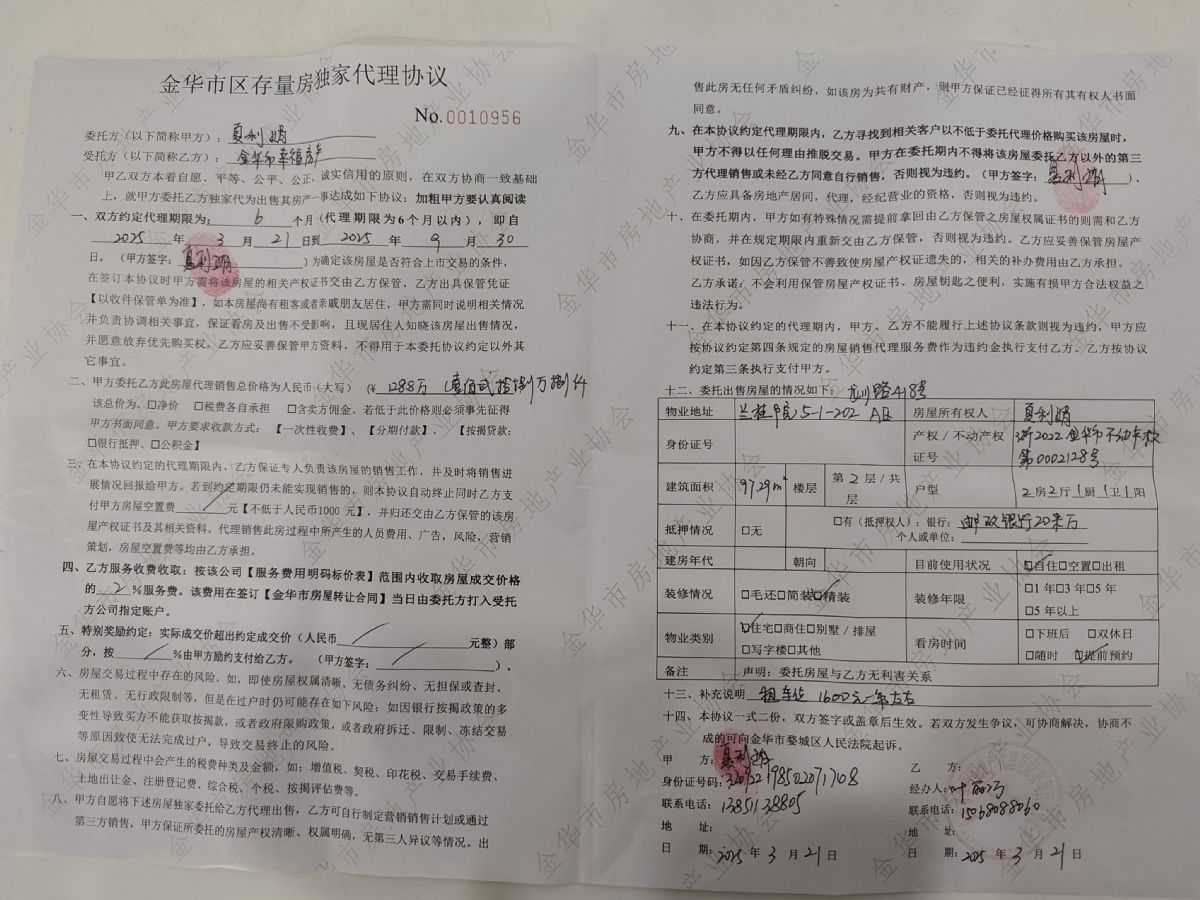 金华市区存量房独家代理协议
No.0010956
委托方（以下简称甲方）：夏利娟
受托方（以下简称乙方）：金华市幸福房产
甲乙双方本着自愿、平等、公平、公正，诚实信用的原则，在双方协商一致基础
上，就甲方委托乙方独家代为出售其房产一事达成如下协议：加粗甲方要认真阅读
一、双方约定代理期限为： 6 个月（代理期限为6个月以内），即自
2025 年 3 月 21 日到 2025 年 9 月 30
日。（甲方签字：夏利娟）为确定该房屋是否符合上市交易的条件，
在签订本协议时甲方需将该房屋的相关产权证书交由乙方保管，乙方出具保管凭证
【以收件保管单为准】，如本房屋尚有租客或者亲戚朋友居住，甲方需同时说明相关情况
并负责协调相关事宜，保证看房及出售不受影响，且现居住人知晓该房屋出售情况，
并愿意放弃优先购买权。乙方应妥善保管甲方资料，不得用于本委托协议约定以外其
它事宜。
二、甲方委托乙方此房屋代理销售总价格为人民币（大写）（¥ 128.8万（壹佰贰拾捌万捌仟
该总价为、□净价 □税费各自承担 □含卖方佣金，若低于此价格则必须事先征得
甲方书面同意。甲方要求收款方式：【一次性收费】、【分期付款】、【按揭贷款：
□银行抵押、□公积金】
三、在本协议约定的代理期限内，乙方保证专人负责该房屋的销售工作，并及时将销售进
展情况回报给甲方。若到约定期限仍未能实现销售的，则本协议自动终止同时乙方支
付甲方房屋空置费 元【不低于人民币1000 元】，并归还交由乙方保管的该房
屋产权证书及其相关资料。代理销售此房过程中所产生的人员费用、广告，风险，营销
策划，房屋空置费等均由乙方承担。
四、乙方服务收费收取：按该公司【服务费用明码标价表】范围内收取房屋成交价格
的 2 %服务费。该费用在签订【金华市房屋转让合同】当日由委托方打入受托
方公司指定账户。
五、特别奖励约定：实际成交价超出约定成交价（人民币 元整）部
分，按 %由甲方励约支付给乙方。（甲方签字： ）。
六、房屋交易过程中存在的风险。如，即使房屋权属清晰、无债务纠纷、无担保或查封、
无租赁、无行政限制等，但是在过户时仍可能存在如下风险：如因银行按揭政策的多
变性导致买方不能获取按揭款，或者政府限购政策，或者政府拆迁、限制、冻结交易
等原因致使无法完成过户，导致交易终止的风险。
七、房屋交易过程中会产生的税费种类及金额，如：增值税、契税、印花税、交易手续费、
土地出让金、注册登记费、综合税、个税、按揭评估费等。
八、甲方自愿将下述房屋独家委托给乙方代理出售，乙方可自行制定营销销售计划或通过
第三方销售，甲方保证所委托的房屋产权清晰、权属明确，无第三人异议等情况。出
售此房无任何矛盾纠纷，如该房为共有财产，则甲方保证已经征得所有其有权人书面
同意。
九、在本协议约定代理期限内，乙方寻找到相关客户以不低于委托代理价格购买该房屋时，
甲方不得以任何理由推脱交易。甲方在委托期内不得将该房屋委托乙方以外的第三
方代理销售或未经乙方同意自行销售，否则视为违约。（甲方签字：夏利娟）．
乙方应具备房地产居间，代理，经纪营业的资格，否则视为违约。
十、在委托期内，甲方如有特殊情况需提前拿回由乙方保管之房屋权属证书的则需和乙方
协商，并在规定期限内重新交由乙方保管，否则视为违约。乙方应妥善保管房屋产
权证书，如因乙方保管不善致使房屋产权证遗失的，相关的补办费用由乙方承担。
乙方承诺：不会利用保管房屋产权证书、房屋钥匙之便利，实施有损甲方合法权益之
违法行为。
十一、在本协议约定的代理期内，甲方、乙方不能履行上述协议条款则视为违约，甲方应
按协议约定第四条规定的房屋销售代理服务费作为违约金执行支付乙方。乙方按协议
约定第三条执行支付甲方。
十二、委托出售房屋的情况如下： 龙川路418号
物业地址 兰桂华院 5-1-202 A区 房屋所有权人 夏利娟
身份证号 产权 / 不动产权证号 浙2022金华市不动产权第0002128号
建筑面积 97.29m² 楼层 第 2 层 / 共 层 户型 2房2厅1厨1卫1阳
抵押情况 □无 □有（抵押权人）：银行： 邮政银行20来万
个人或单位：
建房年代 朝向 目前使用状况 ☑自住□空置□出租
装修情况 □毛还□简装☑精装 装修年限 □1 年□3 年□5 年
□5 年以上
物业类别 ☑住宅□商住□别墅 / 排屋
□写字楼□其他 看房时间 □下班后 □双休日
□随时 ☑提前预约
备注 声明：委托房屋与乙方无利害关系
十三、补充说明 租车位 1600元一年左右
十四、本协议一式二份，双方签字或盖章后生效。若双方发生争议，可协商解决，协商不
成的可向金华市婺城区人民法院起诉。
甲 方：夏利娟
身份证号码：
联系电话：13851138805
地 址：
日 期：2025 年 3 月 21 日
乙 方：
经办人：叶丽巧
联系电话：15068088060
地 址：
日 期：2025 年 3 月 21 日
金华市房地产业协会